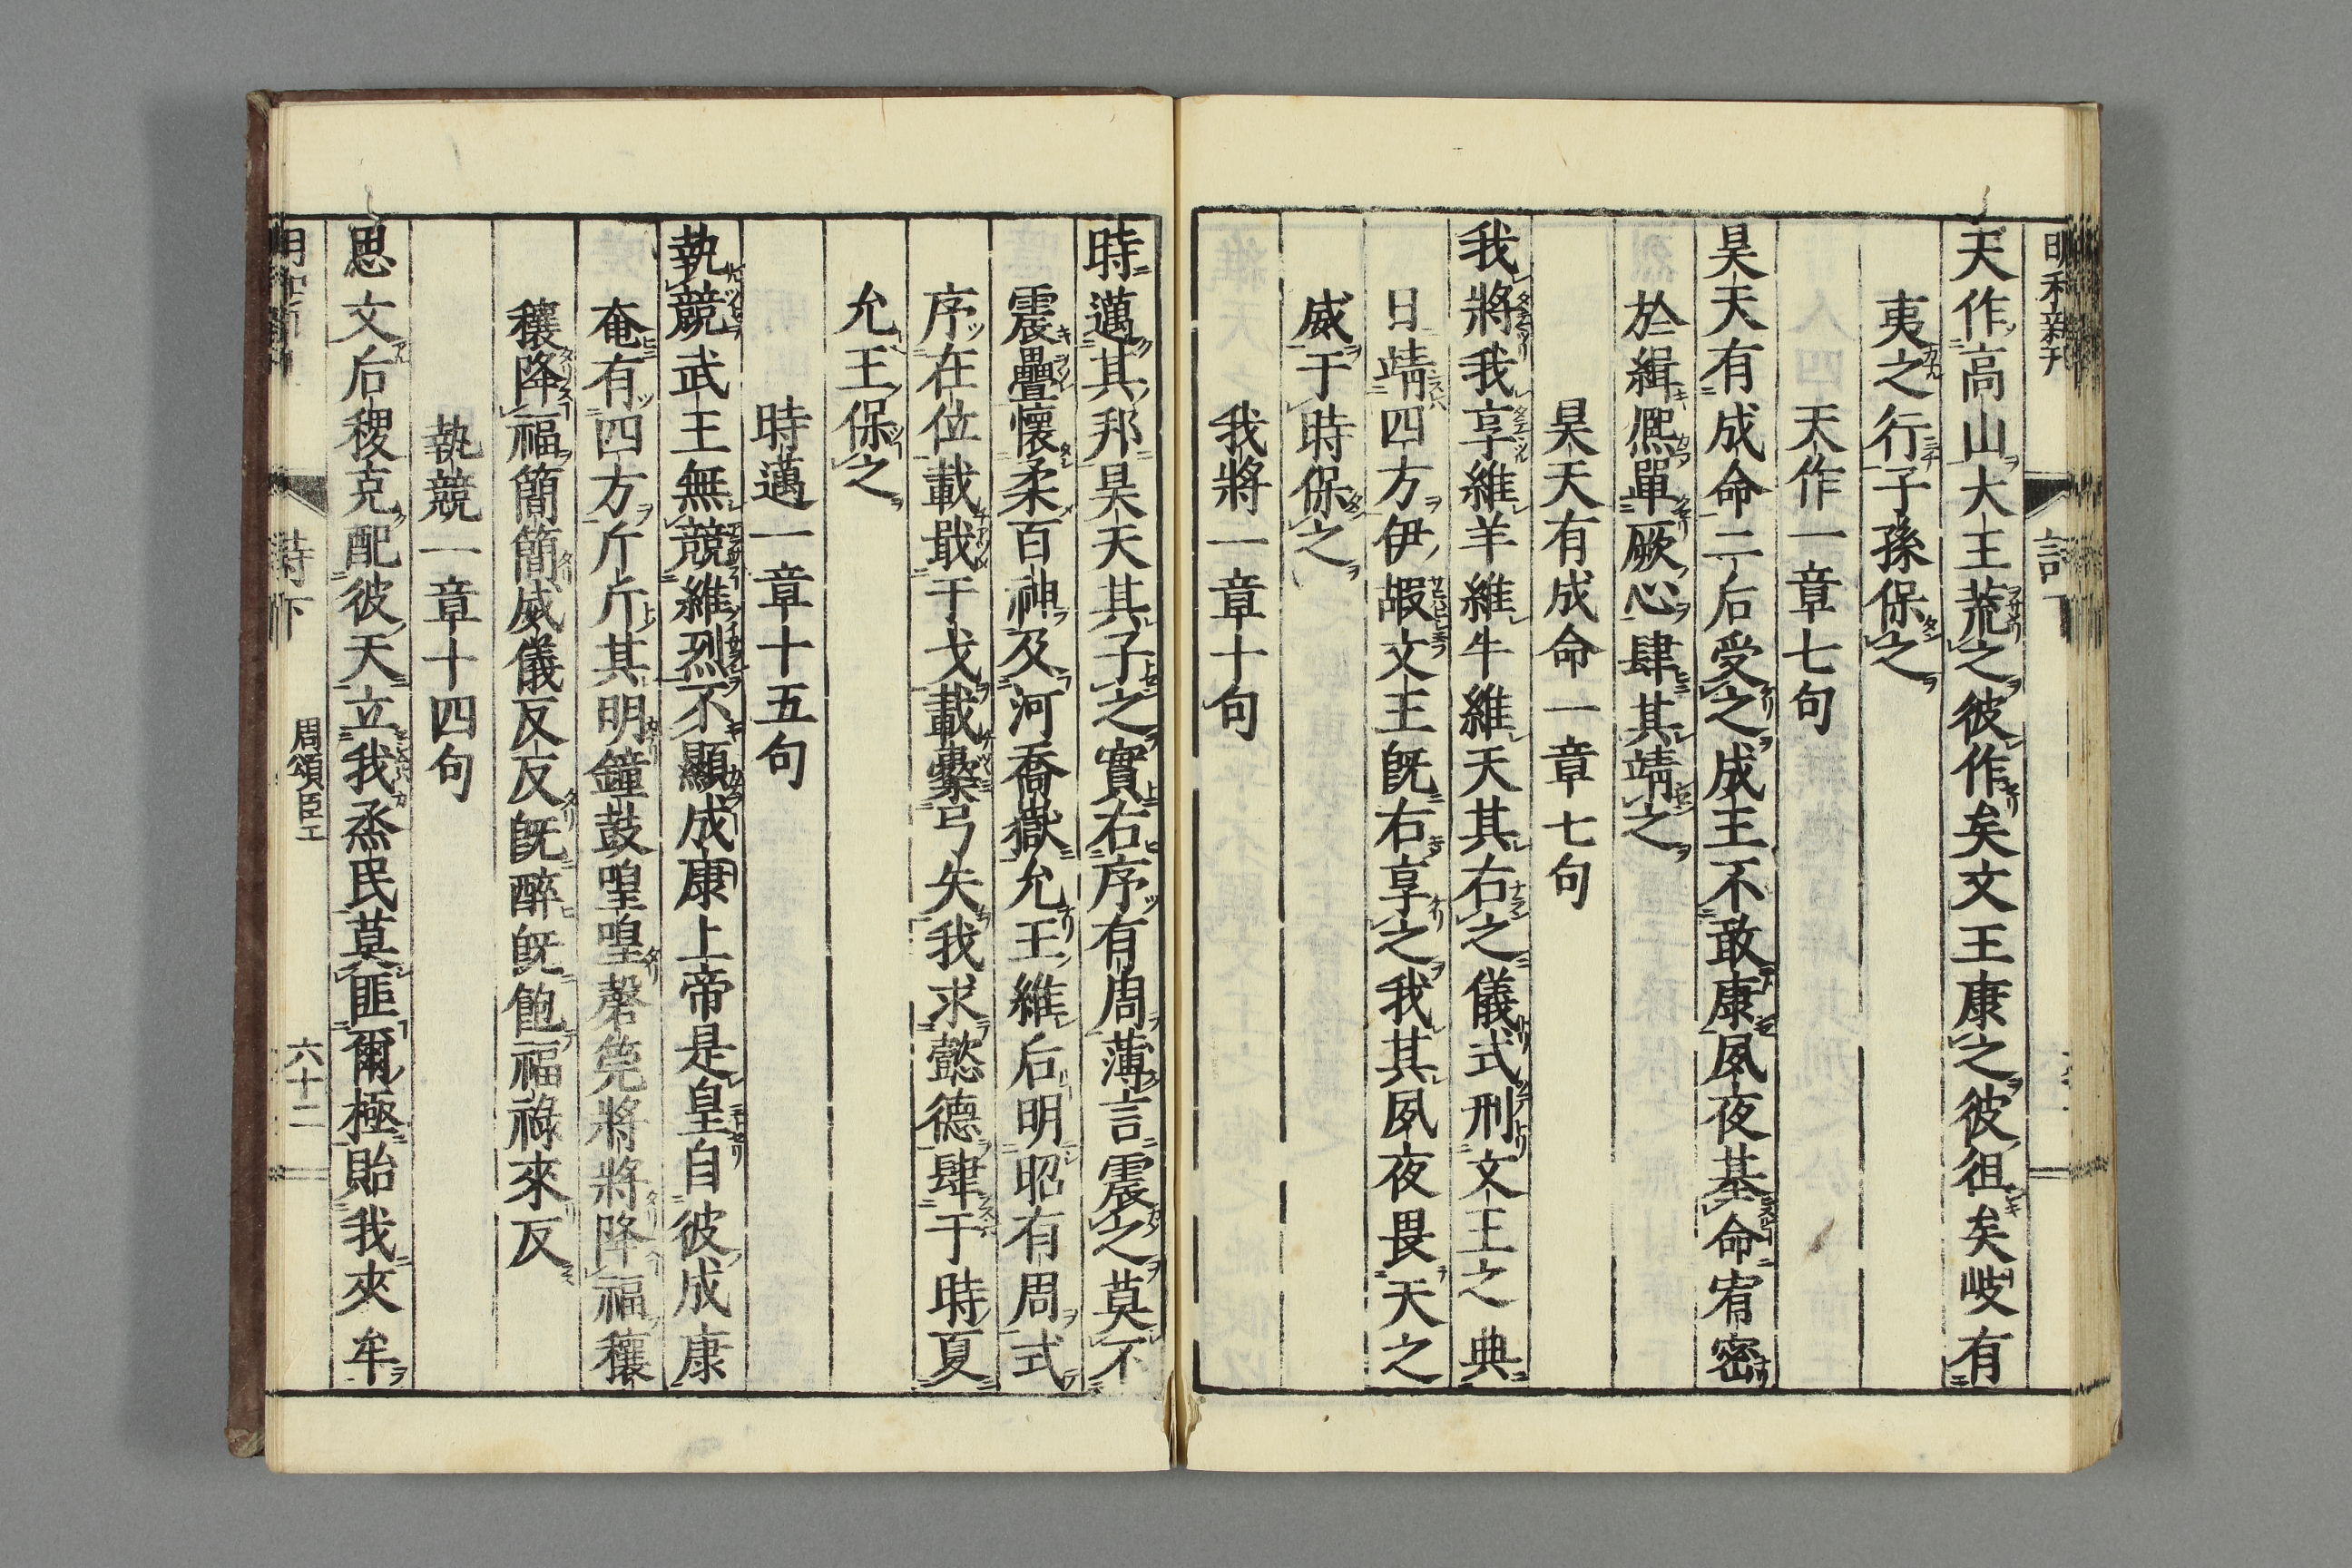 天作高山大王荒之彼作矣文王康之彼徂矣岐有
夷之行子孫保之
天作一章七句
昊天有成命二后受之成王不敢康夙夜基命宥密
於緝熈單厥心肆其靖之
昊天有成命一章七句
我將我享維羊維牛維天其右之儀式刑文王之典
日靖四方伊嘏文王既右享之我其夙夜畏天之
威于時保之
我將一章十句
時邁其邦昊天其子之實右序有周薄言震之莫不
震疊懷柔百神及河喬嶽允王維后明昭有周式
序在位載戢干戈載櫜弓矢我求懿德肆于時夏
允王保之
時邁一章十五句
執競武王無競維烈不顯成康上帝是皇自彼成康
奄有四方斤斤其明鐘鼓喤喤磬筦將將降福穰
穰降福簡簡威儀反反既醉既飽福祿來反
執競一章十四句
思文后稷克配彼天立我烝民莫匪爾極貽我來牟
詩下 周頌臣工 六十二